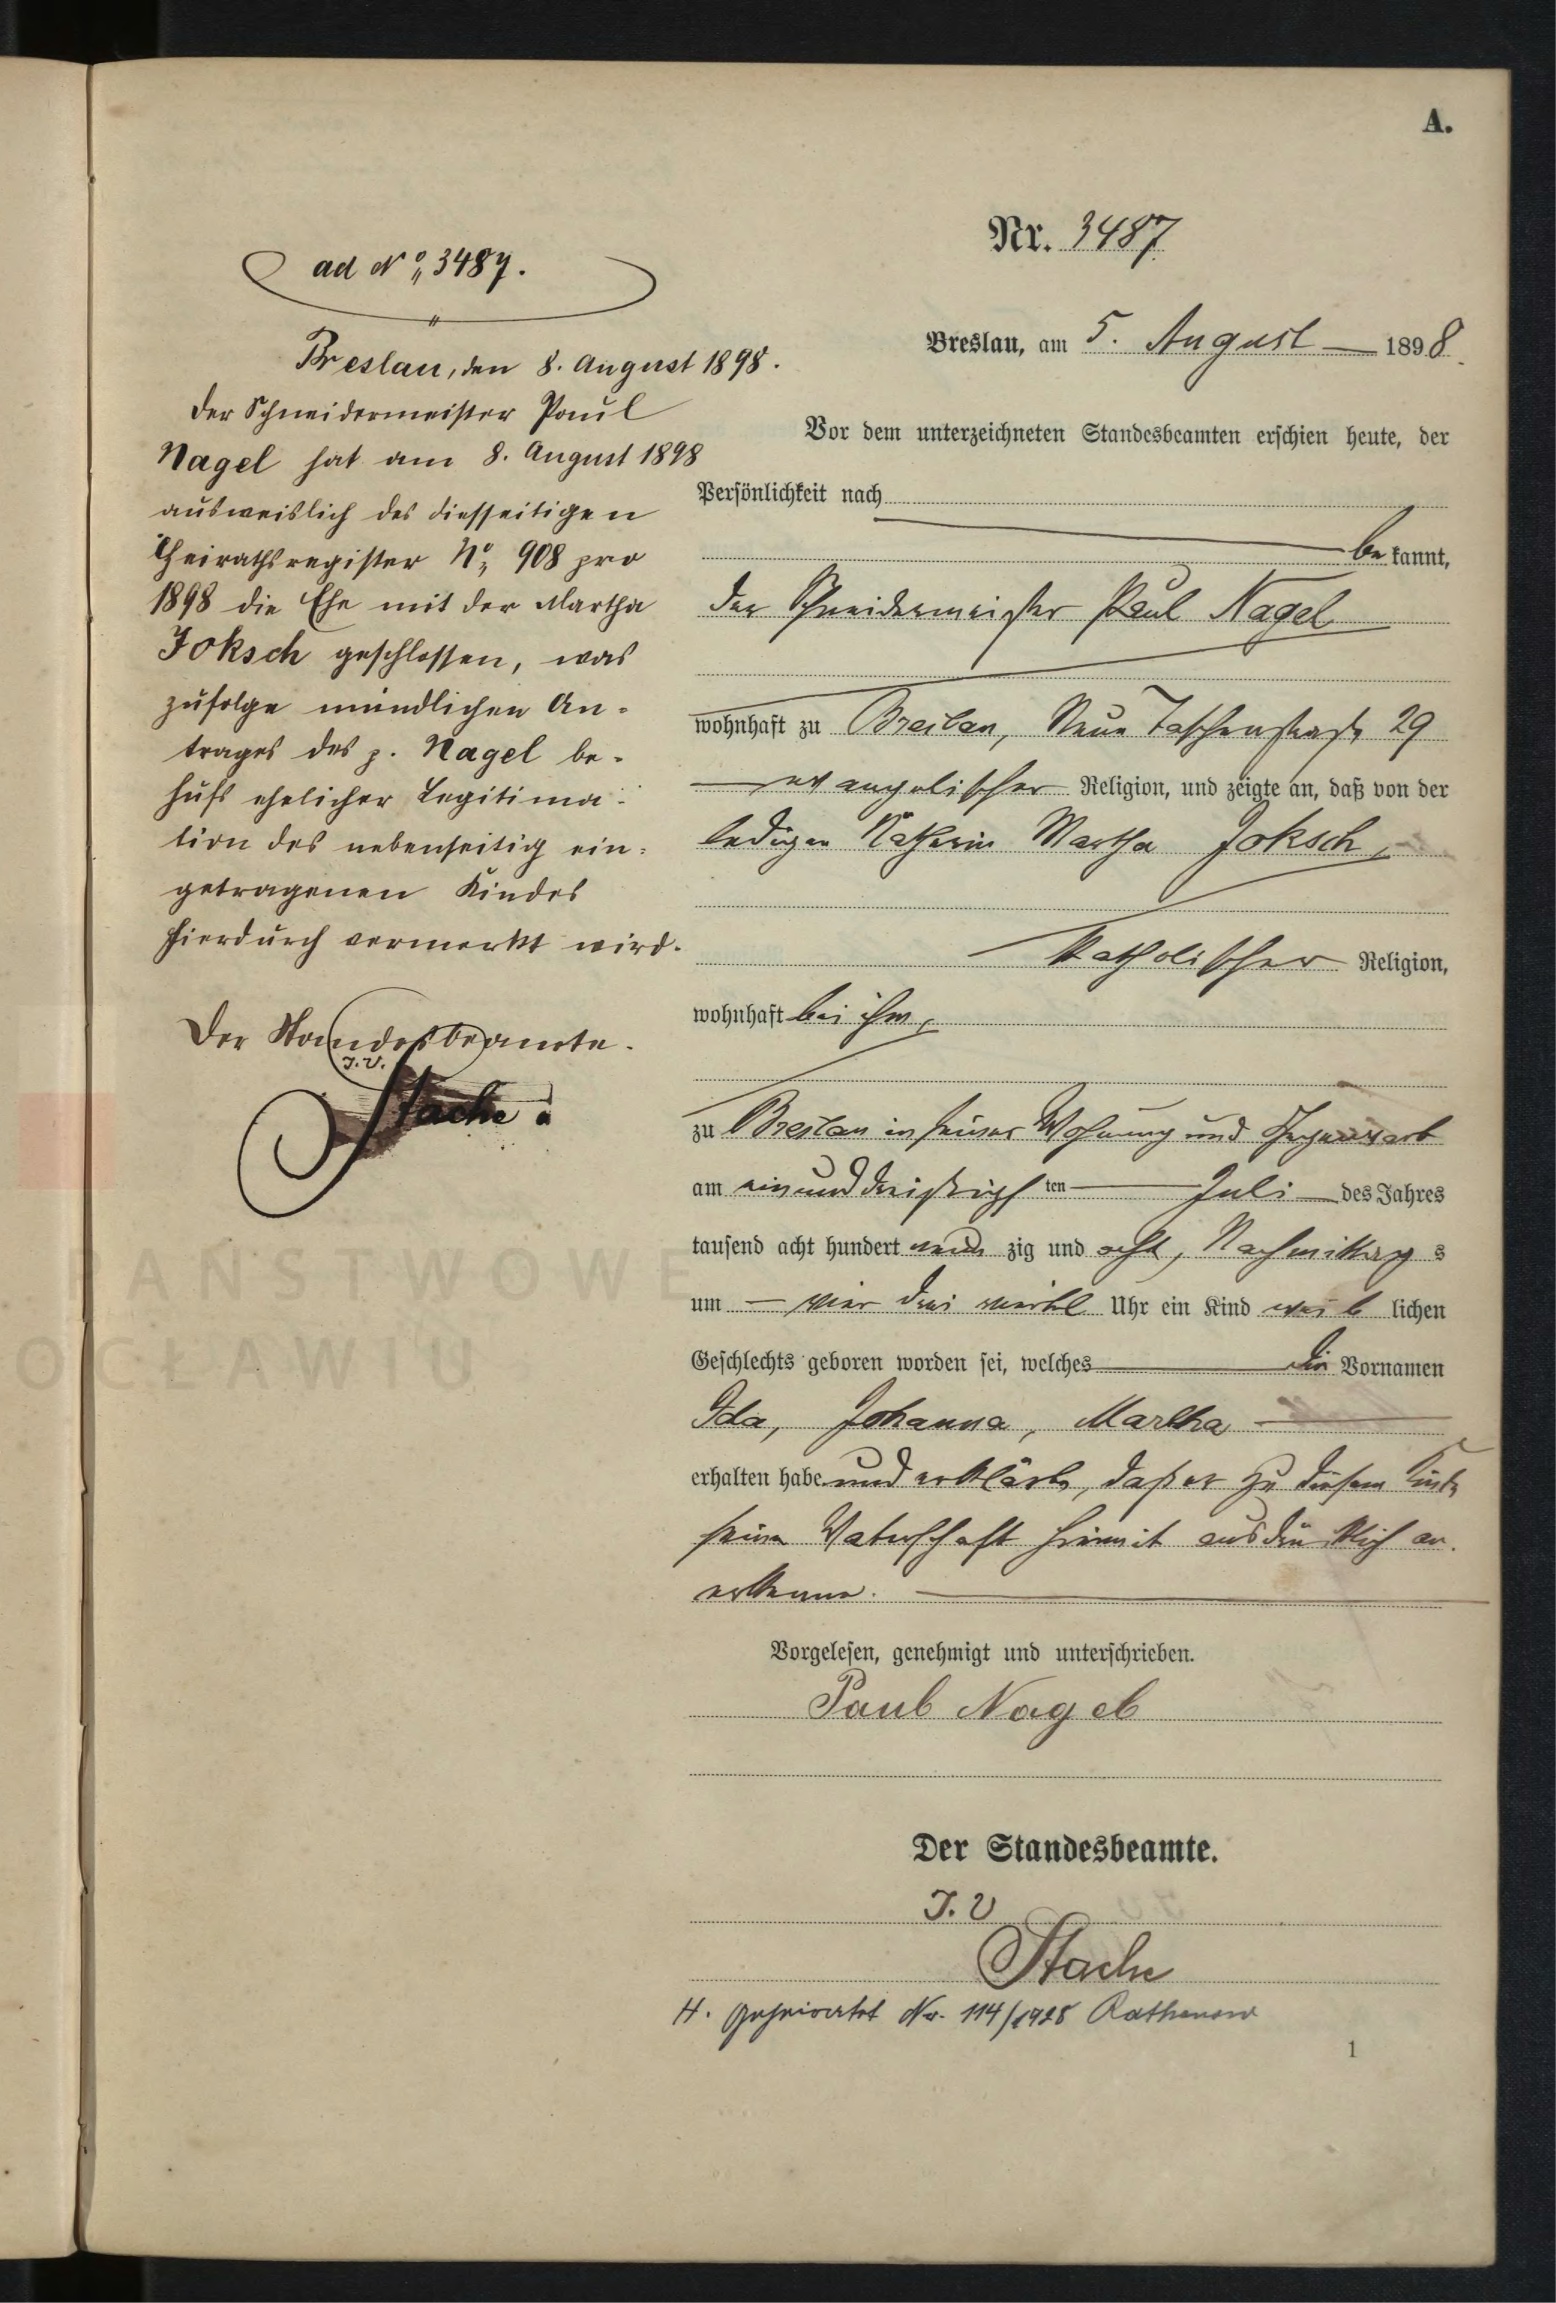 A.
Nr. 3487
Breslau, am 5. August 1898.
Vor dem unterzeichneten Standesbeamten erschien heute, der
Persönlichkeit nach
bekannt,
der Schneidermeister Paul Nagel
wohnhaft zu Breslau, Neue Taschenstraße 29
evangelischer Religion, und zeigte an, daß von der
ledigen Näherin Martha Joksch,
katholischer Religion,
wohnhaft bei ihm,
zu Breslau in seiner Wohnung und Gegenwart
am einunddreißigsten Juli des Jahres
tausend acht hundert neunzig und acht, Nachmittags
um vier drei viertel Uhr ein Kind weiblichen
Geschlechts geboren worden sei, welches die Vornamen
Ida, Johanna, Martha
erhalten habe und erklärte, daß er zu diesem Kinde
seine Vaterschaft hiermit ausdrücklich an-
erkenne.
Vorgelesen, genehmigt und unterschrieben.
Paul Nagel
Der Standesbeamte.
J. V
Stache
H. geheiratet Nr. 114/1928 Rathenow
1
ad No 3487.
Breslau, den 8. August 1898.
Der Schneidermeister Paul
Nagel hat am 8. August 1898
ausweislich des diesseitigen
Heirathsregister No 908 pro
1898 die Ehe mit der Martha
Joksch geschlossen, was
zufolge mündlichen An-
trages des p. Nagel be-
hufs ehelicher Legitima-
tion des nebenseitig ein-
getragenen Kindes
hierdurch vermerkt wird.
Der Standesbeamte.
J. V.
Stache
PAŃSTWOWE
OCŁAWIU